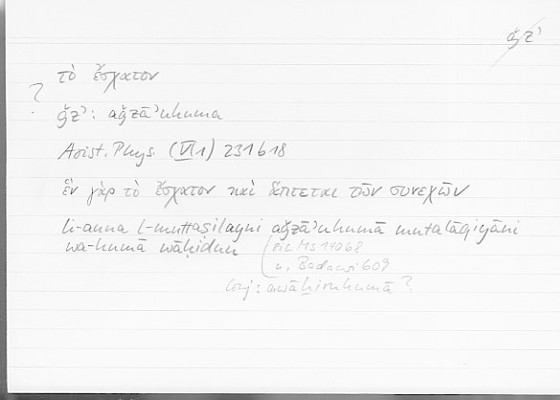 ǧzʾ
τὸ ἔσχατον
?
ǧzʾ: aǧzāʾuhuma
Arist. Phys. (VI1) 231b18
ἓν γὰρ τὸ ἔσχατον καὶ ἅπτεται τῶν συνεχῶν
li-anna l-muttaṣilayni aǧzāʾuhumā mutalāqiyāni
wa-humā wāḥidun
MS 1406a
u. Badawi 609
Conj: awāḫiruhumā?